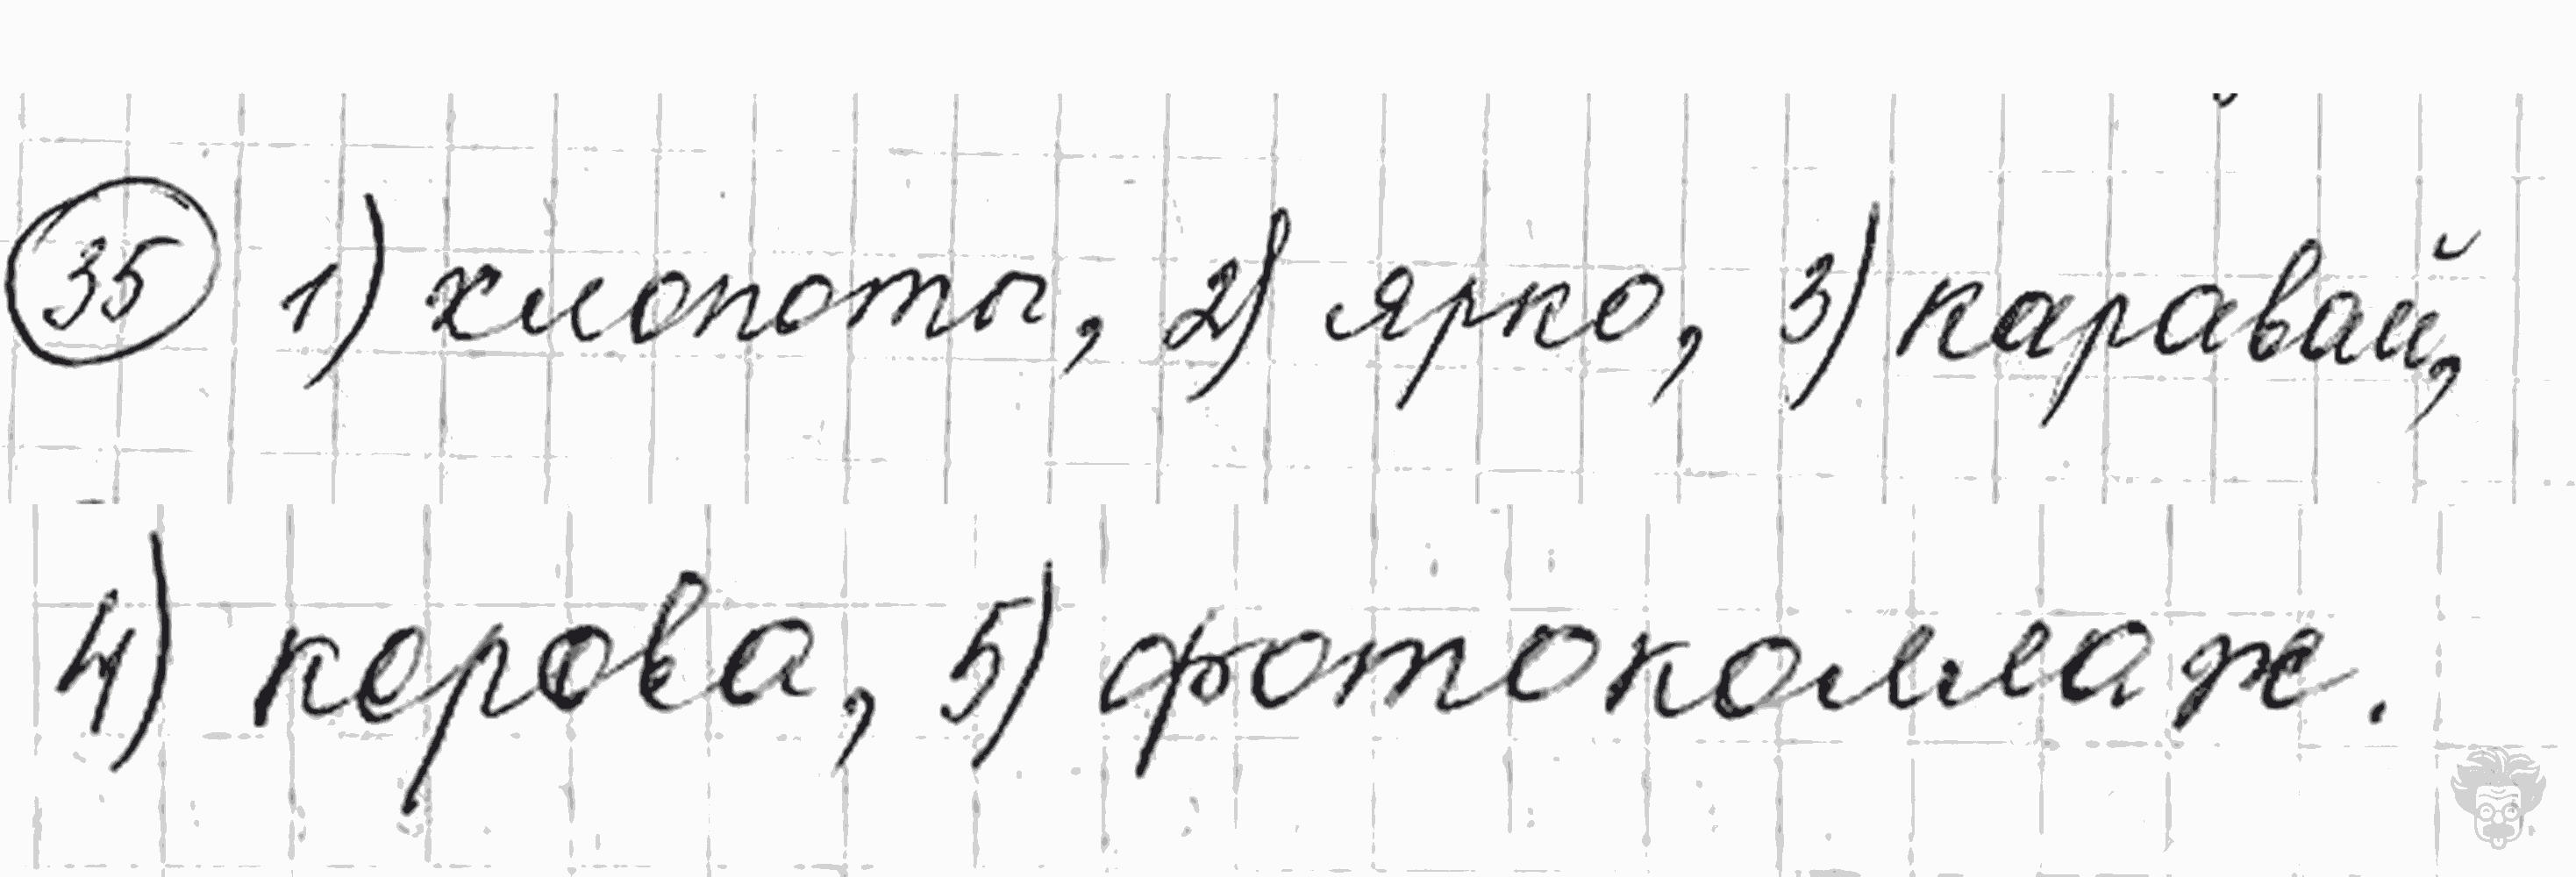 35 1) хлопоты, 2) ярко, 3) каравай,
4) корова, 5) фотоколлаж.